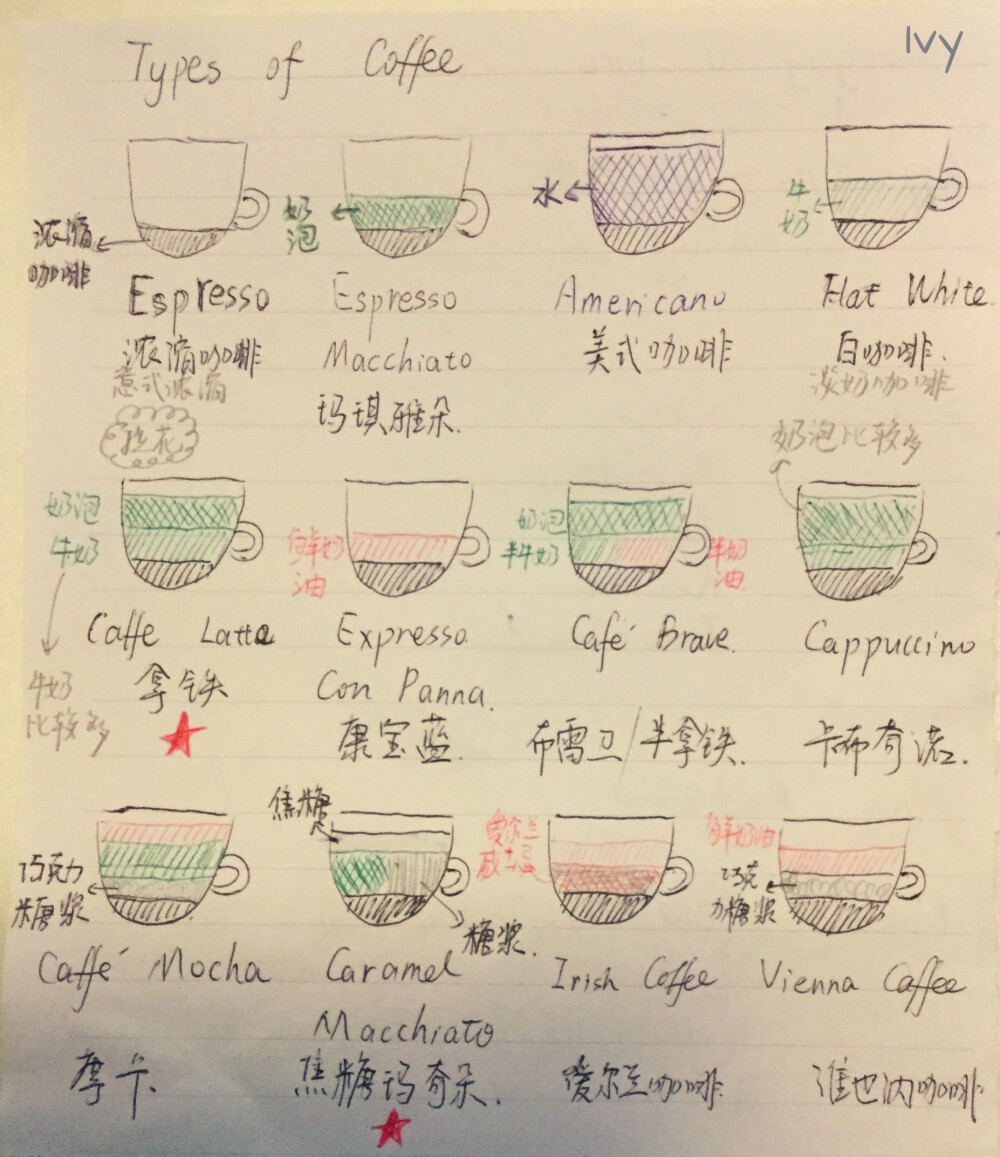 Ivy
Types of Coffee
浓缩
咖啡
奶
泡
水
牛
奶
Espresso
浓缩咖啡
意式浓缩
Espresso
Macchiato
玛琪雅朵.
Americano
美式咖啡
Flat White.
白咖啡.
淡奶咖啡
拉花
奶泡
牛奶
牛奶
比较多
鲜奶
油
奶泡
半牛奶
半奶
油
奶泡比较多
Caffe Latte
拿铁
Expresso
Con Panna.
康宝蓝.
Café Brave.
布雷卫/半拿铁.
Cappuccino
卡布奇诺.
巧克力
糖浆
焦糖
糖浆.
爱尔兰
威士忌
鲜奶油
巧克
力糖浆
Caffé Mocha
摩卡
Caramel
Macchiato
焦糖玛奇朵.
Irish Coffee
爱尔兰咖啡
Vienna Coffee
维也纳咖啡